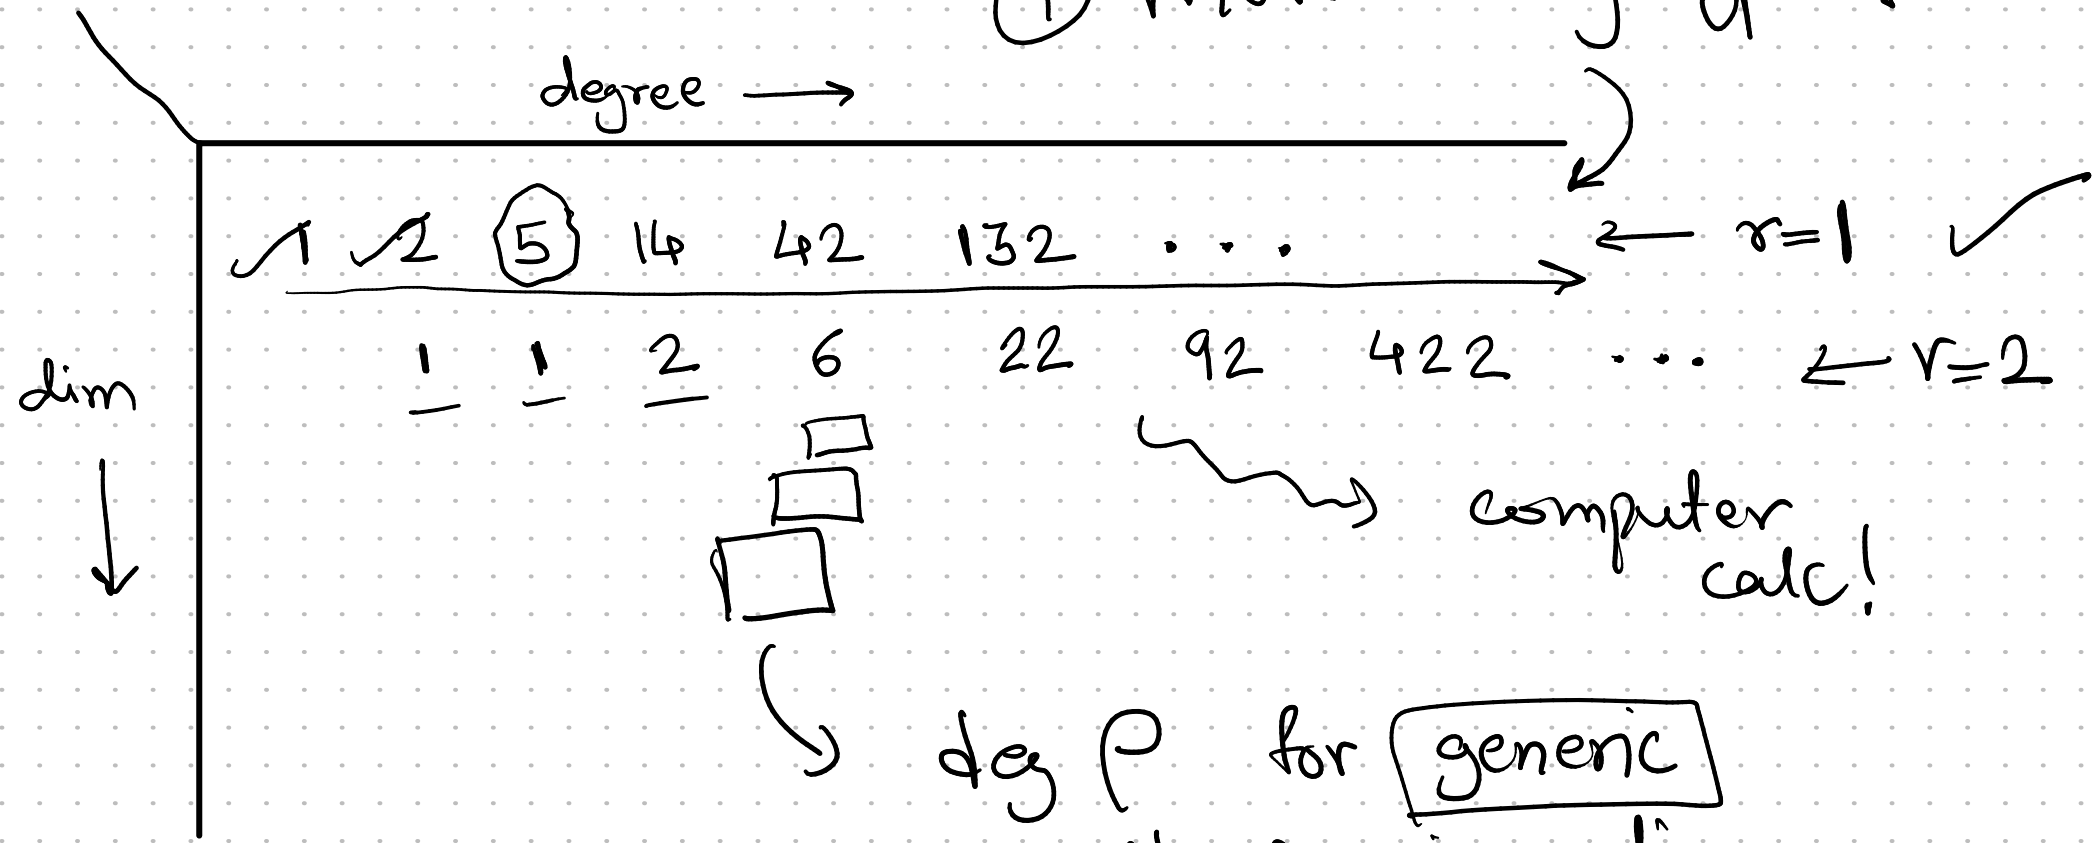 degree →
1 2 5 14 42 132 ... ← r=1 ✓
1 1 2 6 22 92 422 ... ← r=2
dim
↓
computer
calc!
deg ρ for generic